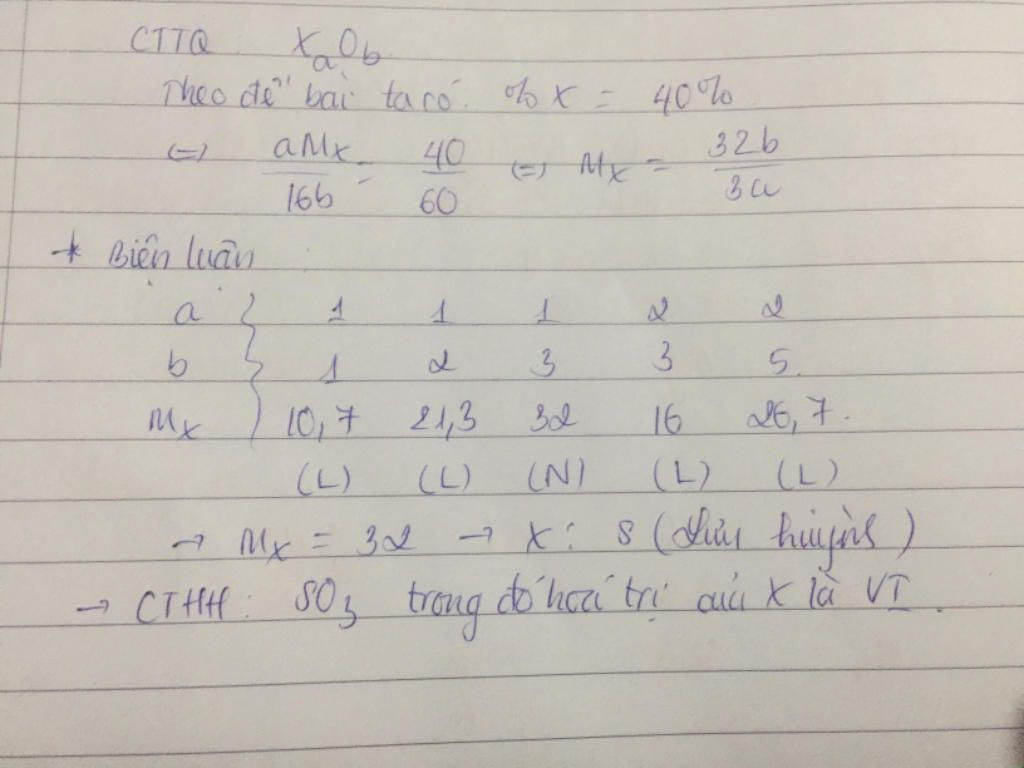 CTTQ XaOb
Theo đề bài ta có % X = 40%
(=) aMx/16b = 40/60 (=) Mx = 32b/3a
* Biện luận
a 1 1 1 2 2
b 1 2 3 3 5.
Mx 10,7 21,3 32 16 26,7.
(L) (L) (N) (L) (L)
→ Mx = 32 → X : S (lưu huỳnh)
→ CTHH : SO3 trong đó hoá trị của X là VI.